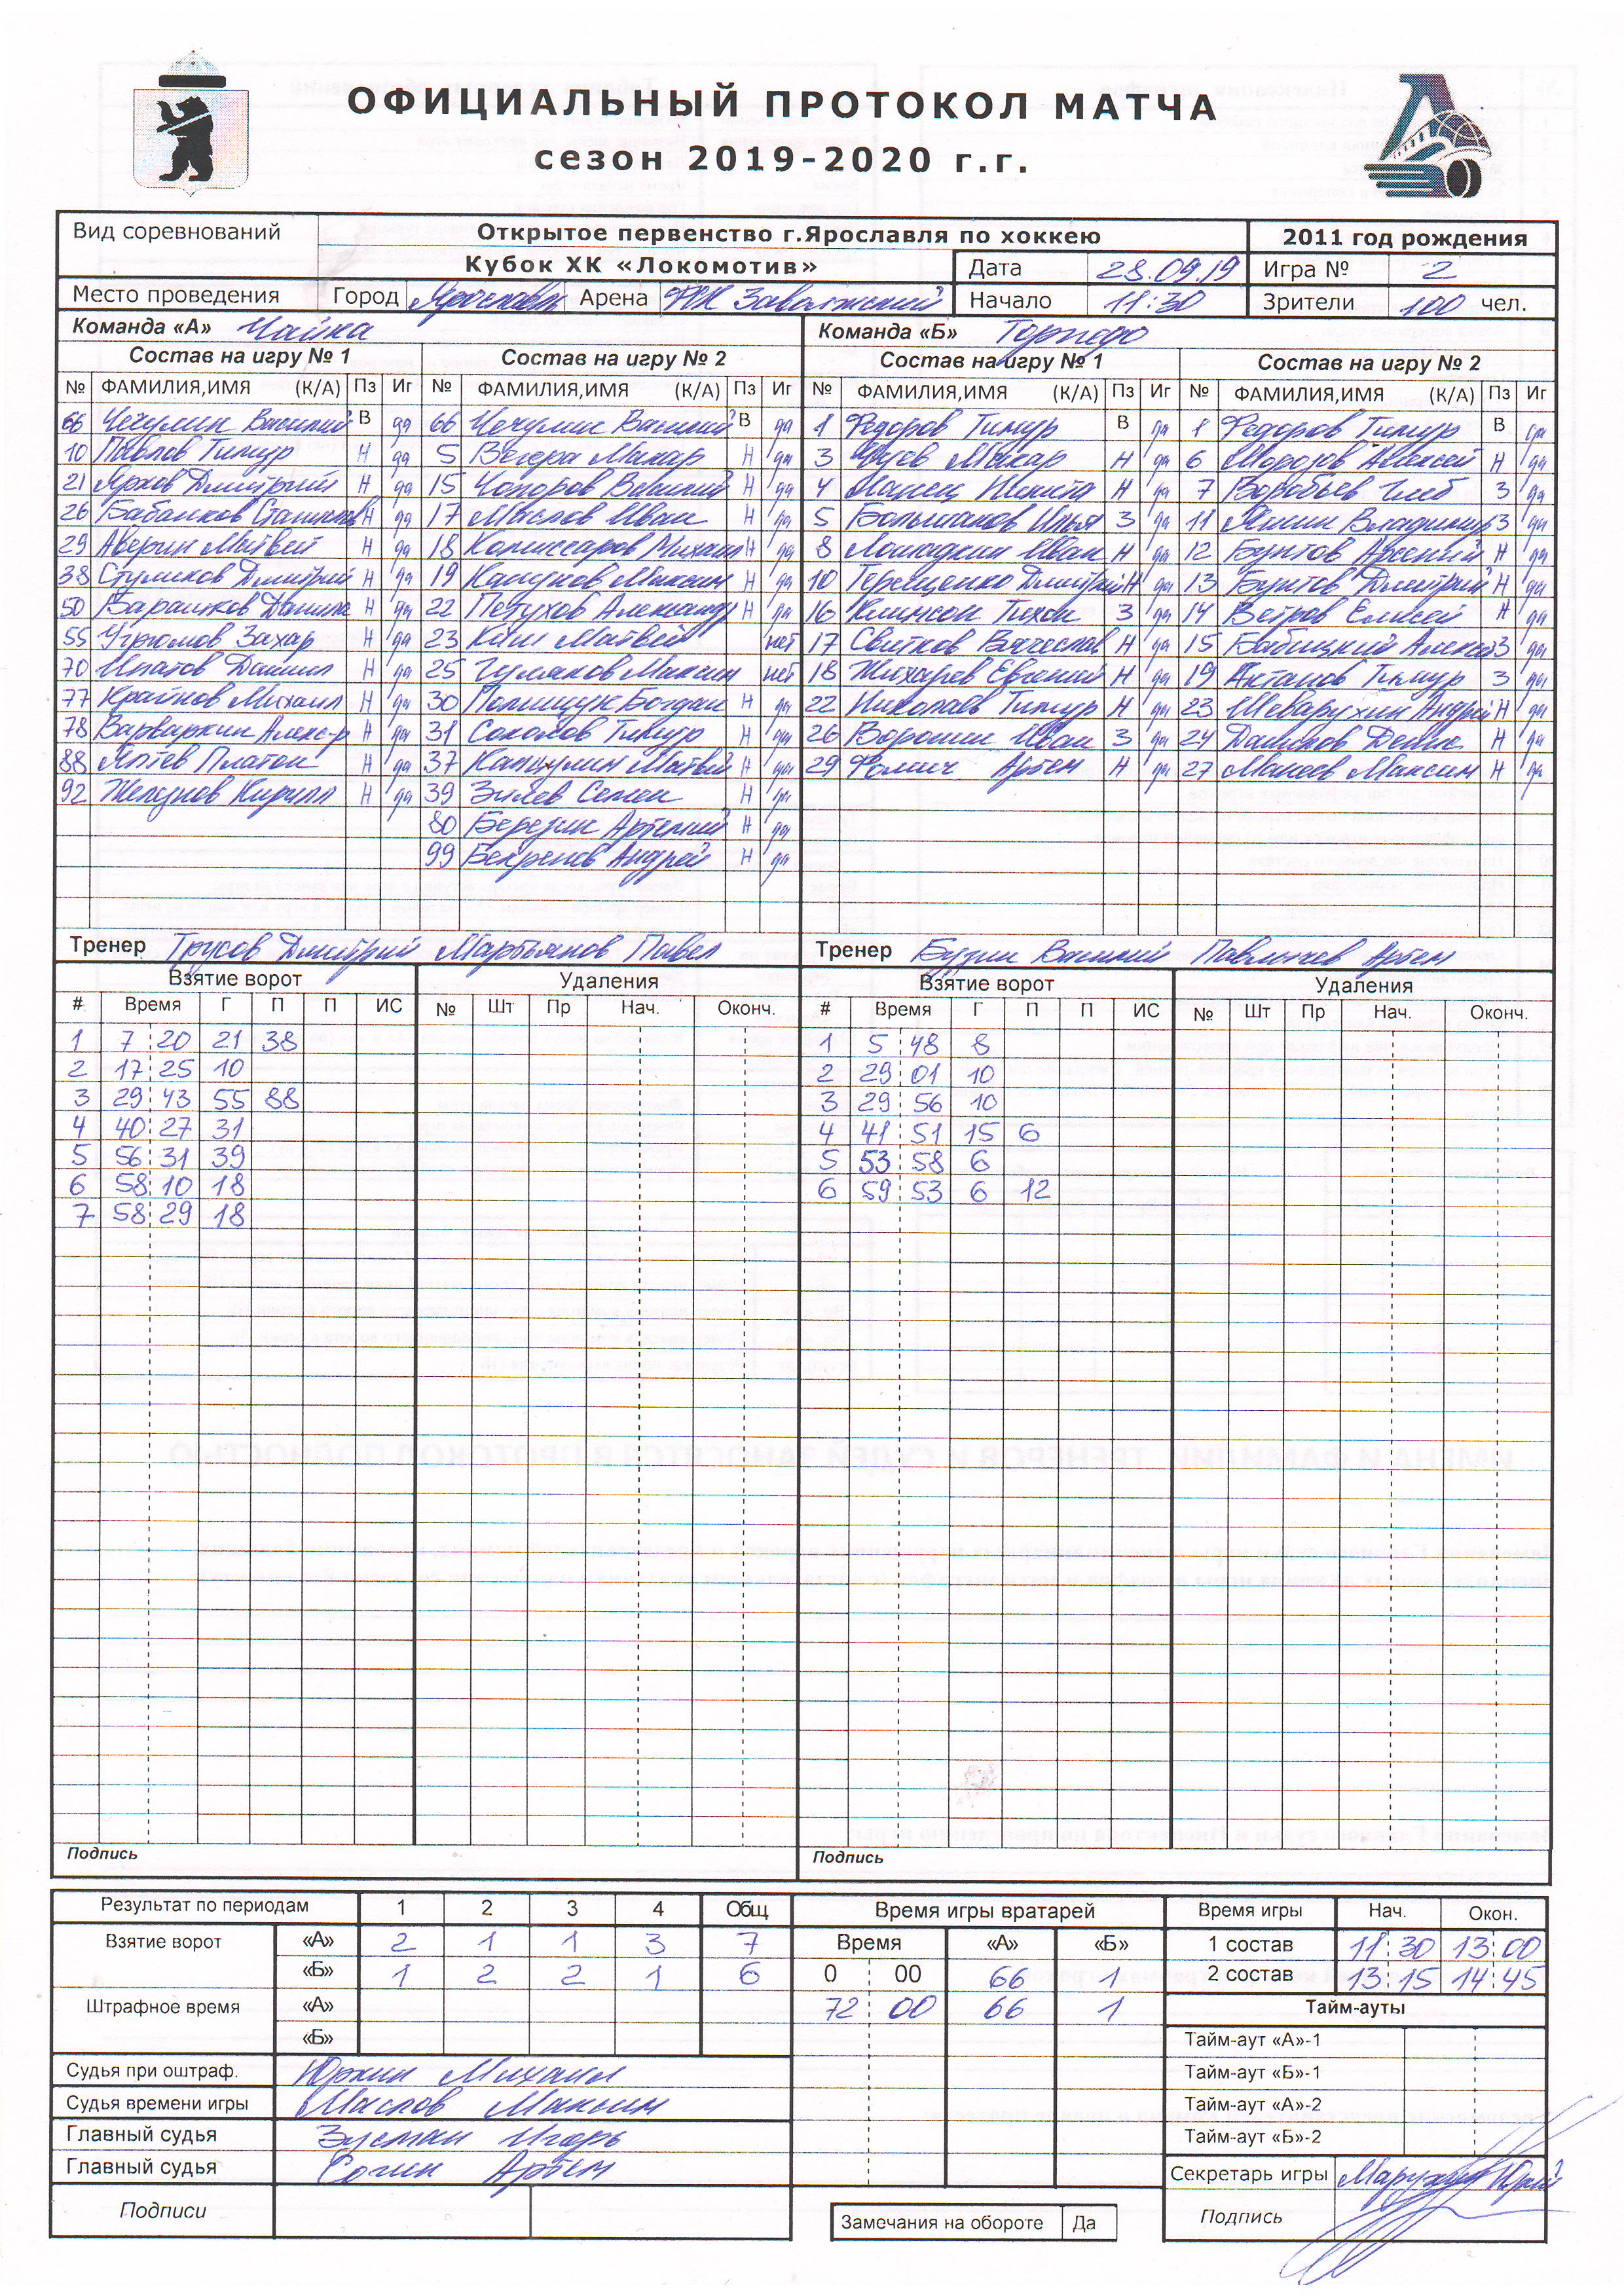 ОФИЦИАЛЬНЫЙ ПРОТОКОЛ МАТЧА
сезон 2019-2020 г.г.
Вид соревнований Открытое первенство г.Ярославля по хоккею 2011 год рождения
Кубок ХК «Локомотив» Дата 28.09.19 Игра № 2
Место проведения Город Ярославль Арена Заволжский Начало 11:30 Зрители 100 чел.
Команда «А» Чайка Команда «Б» Торпедо
Состав на игру № 1 Состав на игру № 2 Состав на игру № 1 Состав на игру № 2
№ ФАМИЛИЯ,ИМЯ (К/А) Пз Иг № ФАМИЛИЯ,ИМЯ (К/А) Пз Иг № ФАМИЛИЯ,ИМЯ (К/А) Пз Иг № ФАМИЛИЯ,ИМЯ (К/А) Пз Иг
66 Чечулин Василий В да 66 Чечулин Василий В да 1 Федоров Тимур В да 1 Федоров Тимур В да
10 Павлов Тимур Н да 5 Вегера Макар Н да 3 Макар Н да 6 Морозов Алексей Н да
21 Дмитрий Н да 15 Чопоров Василий Н да 4 Никита Н да 7 Воробьев Глеб З да
26 Бабанков Н да 17 Маслов Иван Н да 5 Большаков Илья З да 11 Владимир З да
29 Аверин Матвей Н да 18 Комиссаров Михаил Н да 8 Лошадкин Иван Н да 12 Бунтов Арсений Н да
38 Стуликов Дмитрий Н да 19 Капунов Максим Н да 10 Терещенко Дмитрий Н да 13 Бунтов Дмитрий Н да
50 Барашков Данила Н да 22 Петухов Александр Н да 16 Климсон Тихон З да 14 Ветров Елисей Н да
55 Угрюмов Захар Н да 23 Матвей нет 17 Свитков Вячеслав Н да 15 Бабицкий З да
70 Ипатов Даниил Н да 25 Максим нет 18 Жихарев Евгений Н да 19 Актанов Тимур З да
77 Крайнов Михаил Н да 30 Полищук Богдан Н да 22 Николаев Тимур Н да 23 Шеварухин Андрей Н да
78 Варваркин Алекс-р Н да 31 Соколов Тимур Н да 26 Воронин Иван З да 24 Данилов Денис Н да
88 Лаптев Платон Н да 37 Капцулин Матвей Н да 29 Фомич Артем Н да 27 Максим Н да
92 Железнов Кирилл Н да 39 Зилев Семен Н да
80 Березин Артемий Н да
99 Бехренов Андрей Н да
Тренер Трусов Дмитрий Мартьянов Павел Тренер Бузин Василий Павлычев Артем
Взятие ворот Удаления Взятие ворот Удаления
# Время Г П П ИС № Шт Пр Нач. Оконч. # Время Г П П ИС № Шт Пр Нач. Оконч.
1 7 20 21 38 1 5 48 8
2 17 25 10 2 29 01 10
3 29 43 55 88 3 29 56 10
4 40 27 31 4 41 51 15 6
5 56 31 39 5 53 58 6
6 58 10 18 6 59 53 6 12
7 58 29 18
Подпись Подпись
Результат по периодам 1 2 3 4 Общ Время игры вратарей Время игры Нач. Окон.
Взятие ворот «А» 2 1 1 3 7 Время «А» «Б» 1 состав 11 30 13 00
«Б» 1 2 2 1 6 0 00 66 1 2 состав 13 15 14 45
Штрафное время «А» 72 00 66 1 Тайм-ауты
«Б» Тайм-аут «А»-1
Судья при оштраф. Юркин Михаил Тайм-аут «Б»-1
Судья времени игры Маслов Максим Тайм-аут «А»-2
Главный судья Зусман Игорь Тайм-аут «Б»-2
Главный судья Сочин Артем Секретарь игры Юрий
Подписи Замечания на обороте Да Подпись